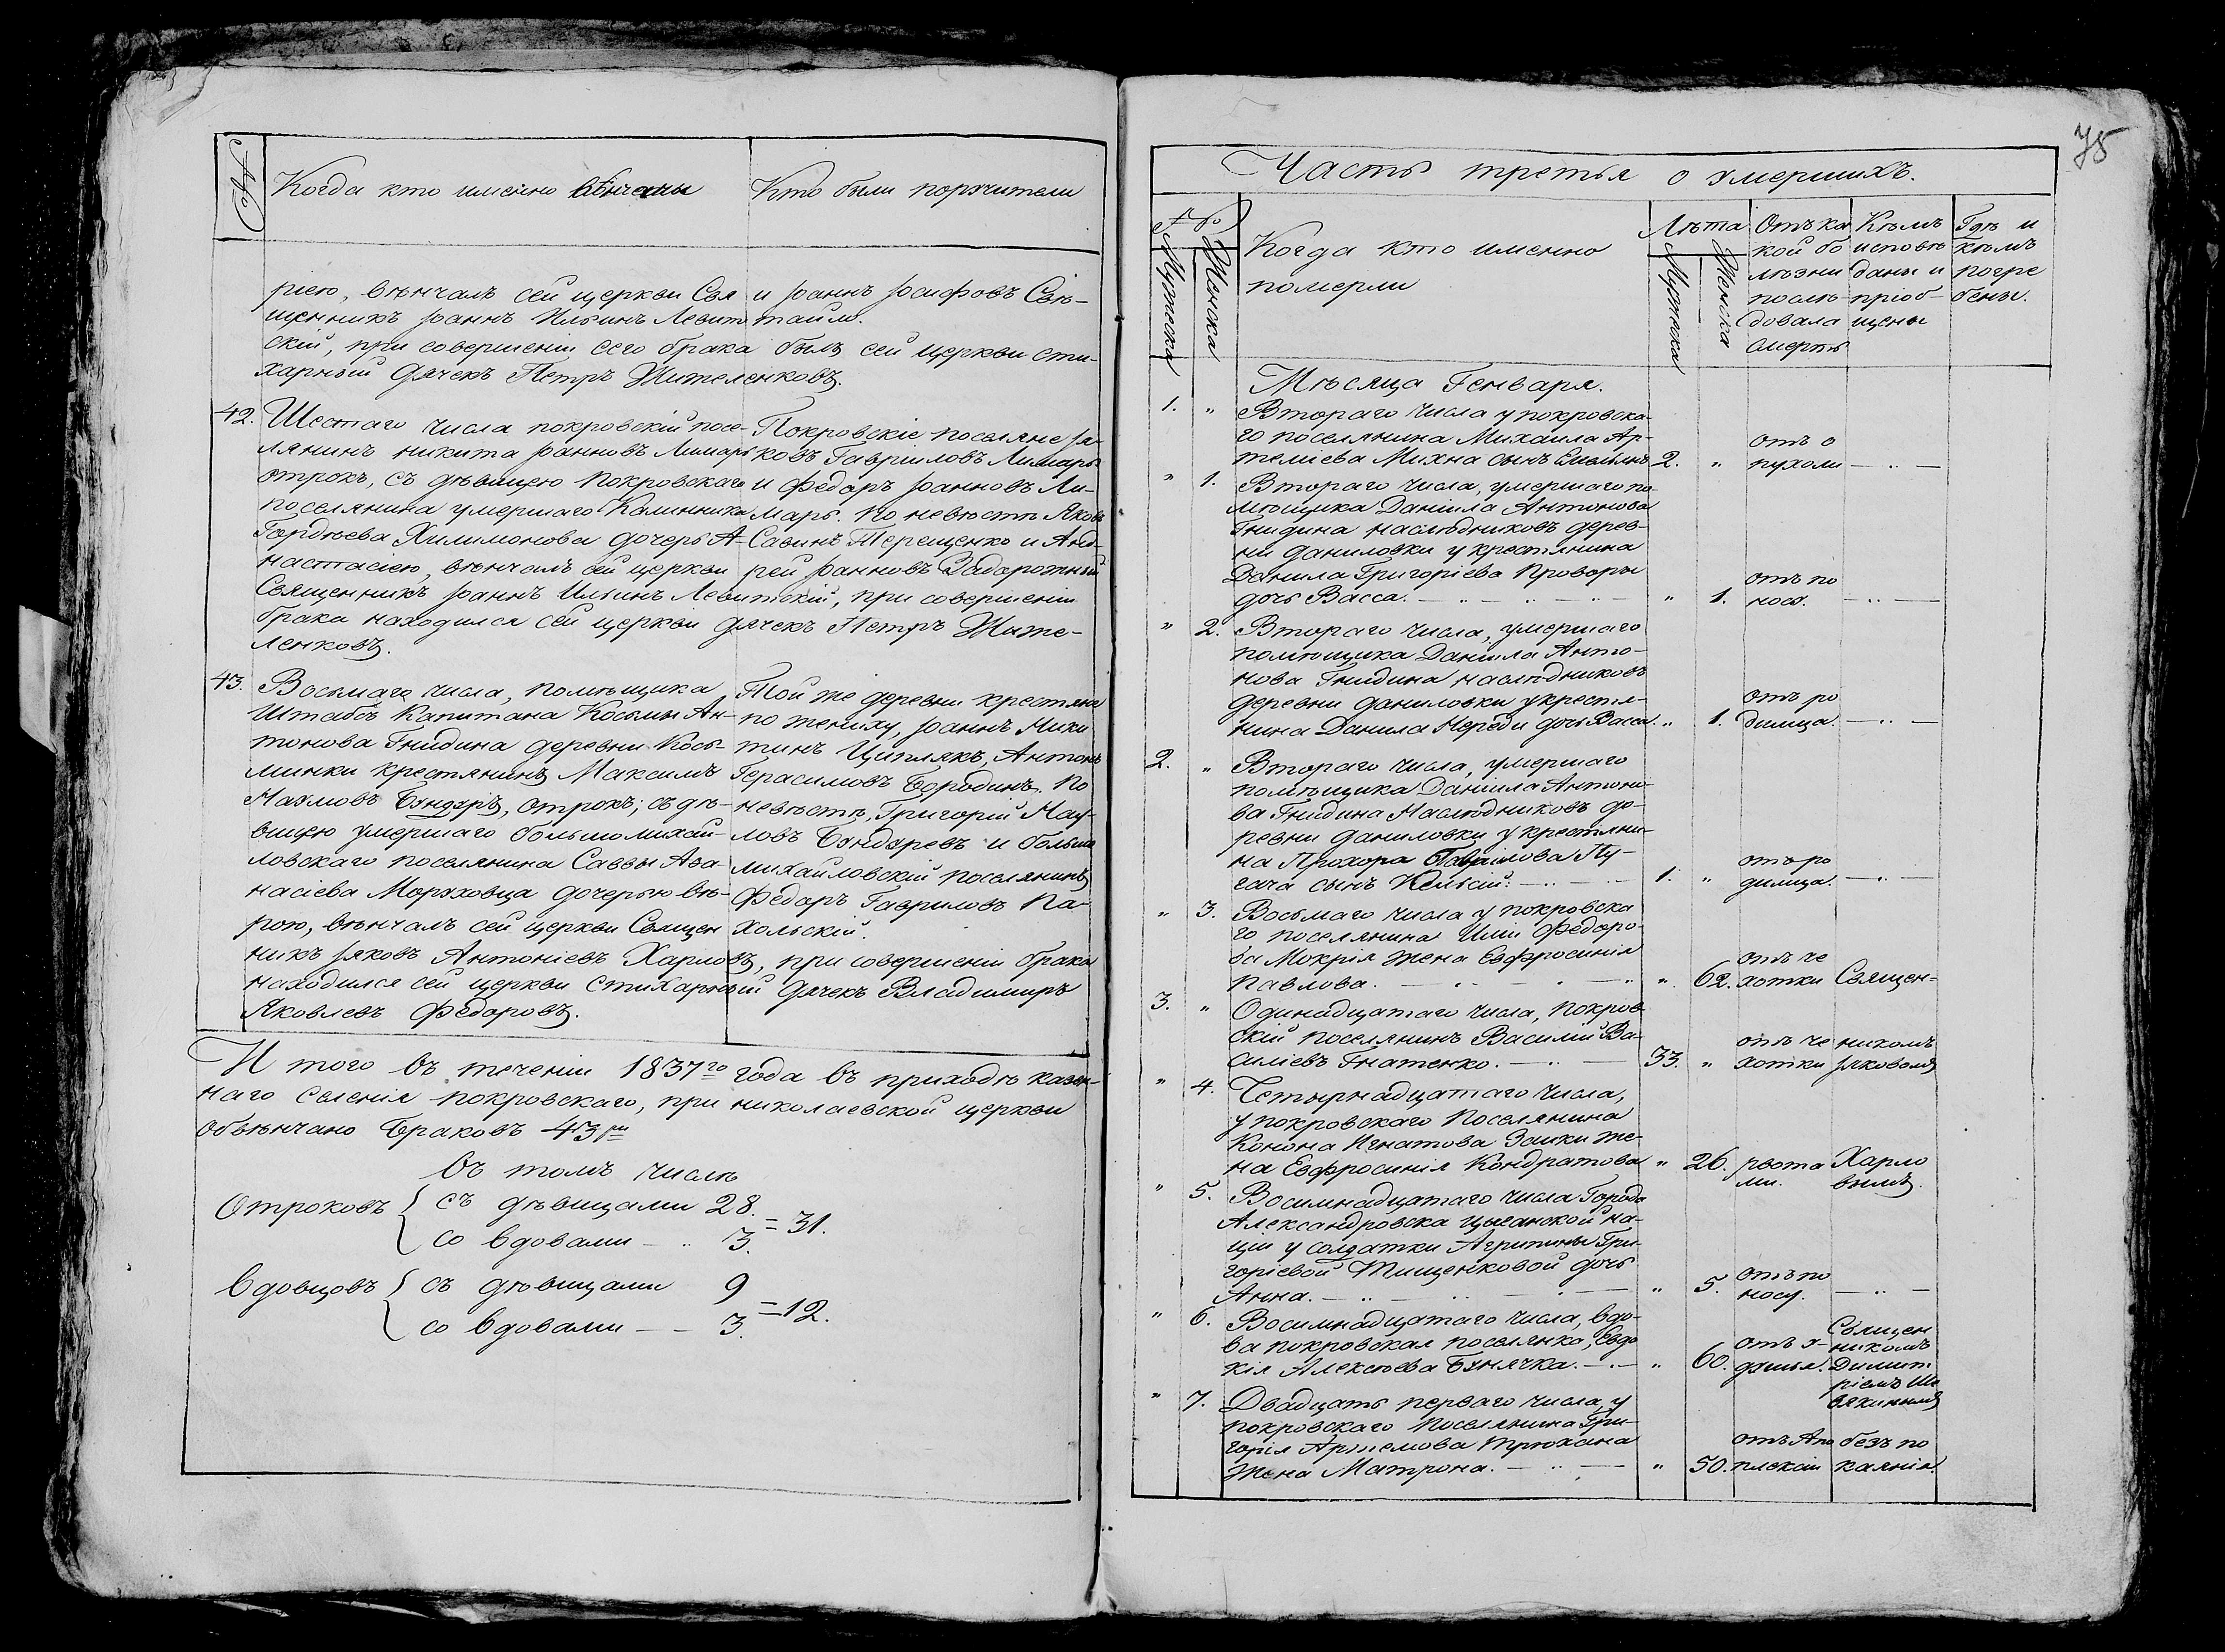 №
Когда кто именно вѣнчаны
Кто были поручители
ріею, вѣнчалъ сей церкви Свя
щенникъ Іоаннъ Ильинъ Левит
скій, при совершеніи сего брака былъ сей церкви сти-
харный Дячекъ Петръ Жителенковъ.
и Іоаннъ Іосифовъ Свѣ-
тайло.
42.
Шестаго числа покровскій посе-
лянинъ никита Іоанновъ Лимарь
отрокъ, съ дѣвицею Покровскаго
поселянина умершаго Калинника
Гордѣева Хилимонова дочерь А-
настасіею, вѣнчалъ сей церкви
Священникъ Іоаннъ Ильинъ Левитскій, при совершеніи
брака находился сей церкви дячекъ Петръ Жите-
ленковъ.
Покровскіе поселяне Іа-
ковъ Гавриловъ Лимарь
и Федоръ Іоанновъ Ли-
марь. по невѣстѣ Яковъ
Савинъ Терещенко и Анд-
рей Іоанновъ Задорожный
43.
Восьмаго числа, помѣщика
Штабсъ Капитана Косьмы Ан-
тонова Гнидина деревни Кось-
минки крестянинъ Максимъ
Наумовъ Бундуръ, отрокъ; съ дѣ-
вицею умершаго большомихай-
ловскаго поселянина Саввы Аѳа-
насіева Моруховца дочерью вѣ-
рою, вѣнчалъ сей церкви Священ
никъ Іяковъ Антоніевъ Харловъ, при совершеніи брака
находился сей церкви Стихарный Дячекъ Владимиръ
Яковлевъ Федоровъ.
Той же деревни крестяне
по жениху, Іоаннъ Ники
тинъ Циплякъ, Антонъ
Герасимовъ Бородинъ. По
невѣстѣ, Григорій Нау-
мовъ Бундуревъ и больше
михайловскій поселянинъ
Федоръ Гавриловъ Па-
хольскій.
И того въ теченіи 1837го года въ приходѣ казен-
наго селенія покровскаго, при николаевской церкви
обвѣнчано Браковъ 43ри
въ томъ числѣ
Отроковъ { съ дѣвицами 28.
со вдовами — 3. = 31.
Вдовцовъ { съ дѣвицами 9
со вдовами — 3. = 12.
75
Часть третья о умершихъ.
№
Мужеска
Женска
Когда кто именно
померли
Лѣта
Мужеска
Женска
Отъ ка
кой бо
лѣзни
послѣ-
довала
смерть
Кѣмъ
исповѣ
даны и
пріоб-
щены
Гдѣ и
кѣмъ
погре
бены.
Мѣсяца Генваря.
1. " Втораго числа у покровска-
го поселянина Михаила Ар-
темиева Михна сынъ Емельянъ 2. "
отъ о
пухоли — " —
" 1. Втораго числа, умершаго по-
мѣщика Даніила Антонова
Гнидина наслѣдниковъ дерев-
ни даниловки у крестянина
Данила Григоріева Проворы
дочь Васса. — " — " — " 1.
отъ по
носу. — " —
" 2. Втораго числа, умершаго
помѣщика Даніила Анто-
нова Гнидина наслѣдниковъ
деревни даниловки у крестя-
нина Данила Нереди дочь Васса. " 1.
отъ ро
димца. — " —
2. " Втораго числа, умершаго
помѣщика Даніила Антоно-
ва Гнидина Наслѣдниковъ де-
ревни даниловки у крестяни-
на Прохора Гаврилова Пу-
гача сынъ Кельсій. — " — 1. "
отъ ро
димца. — " —
" 3. Восьмаго числа у покровска
го поселянина Иліи Федоро-
ва Мокрія жена Евфросинія
Павлова. — " — " 62.
отъ че
хотки Священ-
3. " Одинадцатаго числа, покров-
скій поселянинъ Василій Ва-
силіевъ Гнатенко. — " — 33. "
отъ че
хотки
никомъ
Іяковомъ
" 4. Четырнадцатаго числа,
у покровскаго Поселянина
Конона Игнатова Заики же-
на Евфросинія Кондратова " 26.
рвота
ми.
Харло
вымъ.
" 5. Восимнадцатаго числа Города
Александровска цыганской на-
ціи у солдатки Агрипины Гри-
горіевой Тищенковой дочь
Анна. — " — " — " 5.
отъ по
носу. — " —
" 6. Восимнадцатаго числа, вдо-
ва покровская поселянка, Евдо
кія Алексѣева Бунячка. — " — " 60.
отъ у-
душья.
Священ
никомъ
Димит
ріемъ Ше
вякинымъ
" 7. Двадцать перваго числа, у
покровскаго поселянина Гри-
горія Артемова Трюхана
жена Матрона. — " — " 50.
отъ Апо
плексіи
безъ по
каянія.